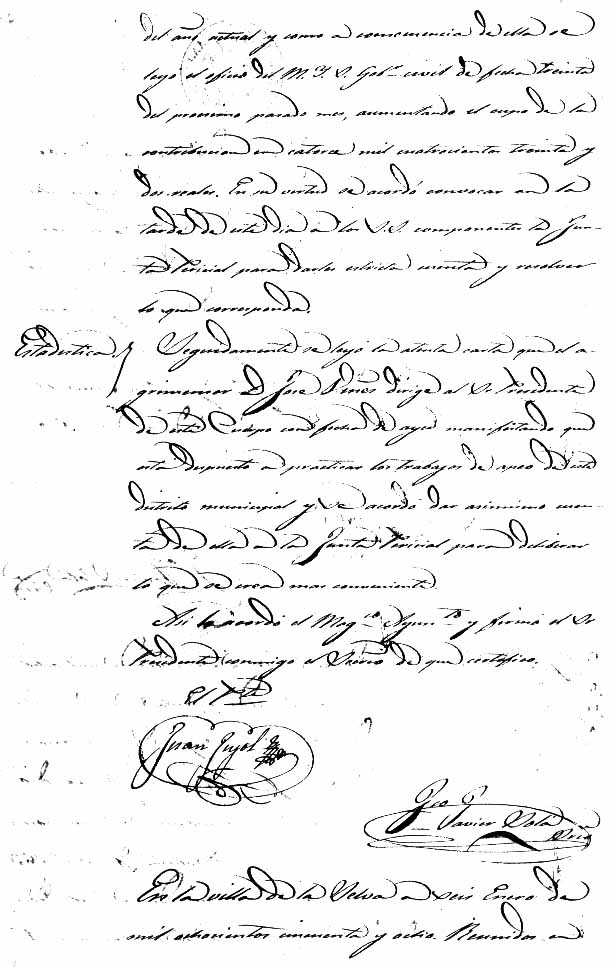 del año actual y como a consecuencia de ella se
leyó el oficio del M. Y. S. Gobr. civil de fecha treinta
del proximo pasado mes, aumentando el cupo de la
contribucion en catorce mil cuatrocientos treinta y
dos reales. En su virtud se acordó convocar en la
tarde de este dia a los S.S. componentes la Jun-
ta Pericial para darles estricta cuenta y resolver
lo que corresponda.
Estadistica
Seguidamente se leyó la atenta carta que el a-
grimensor D. José dirige al Sr. Presidente
de este Cuerpo con fecha de ayer manifestando que
está dispuesto a practicar los trabajos de apeo de este
distrito municipal y se acordó dar asimismo cuen-
ta de ella a la Junta Pericial para deliberar
lo que se crea mas conveniente.
Asi lo acordó el Magco. Ayunto. y firmó el Sr
Presidente conmigo el Srio. de que certifico.
El Pte
Juan Pujol
Fco
Javier Solá
Srio
En la villa de la Selva a seis Enero de
mil ochocientos cincuenta y ocho. Reunidos en